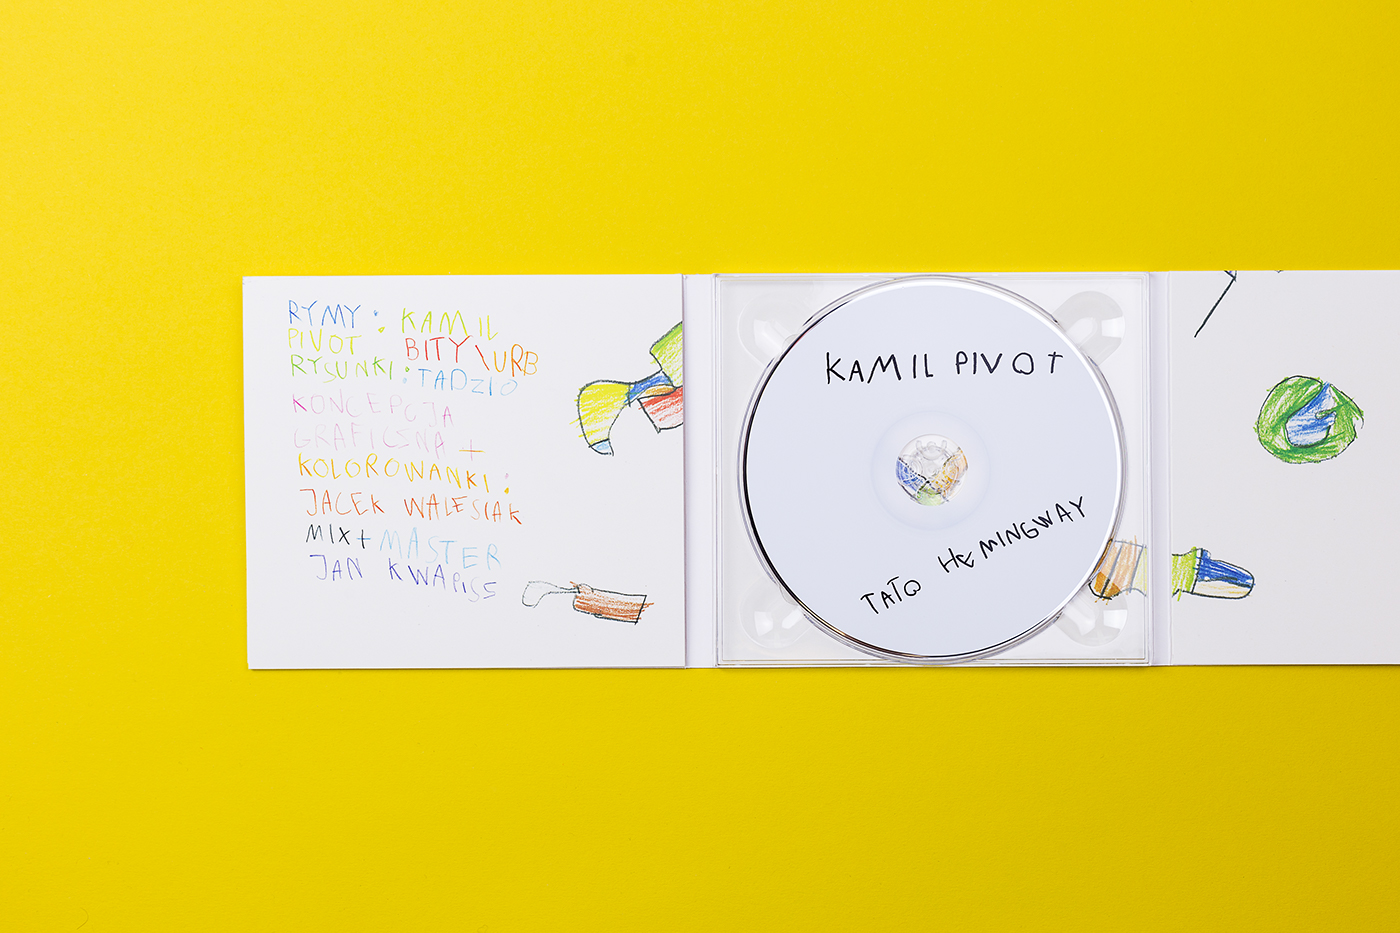 RYMY: KAMIL
PIVOT. BITY\URB
RYSUNKI: TADZIO
KONCEPCJA
GRAFICZNA +
KOLOROWANKI:
JACEK WALESIAK
MIX+MASTER
JAN KWAPISS
KAMIL PIVOT
TATO HEMINGWAY